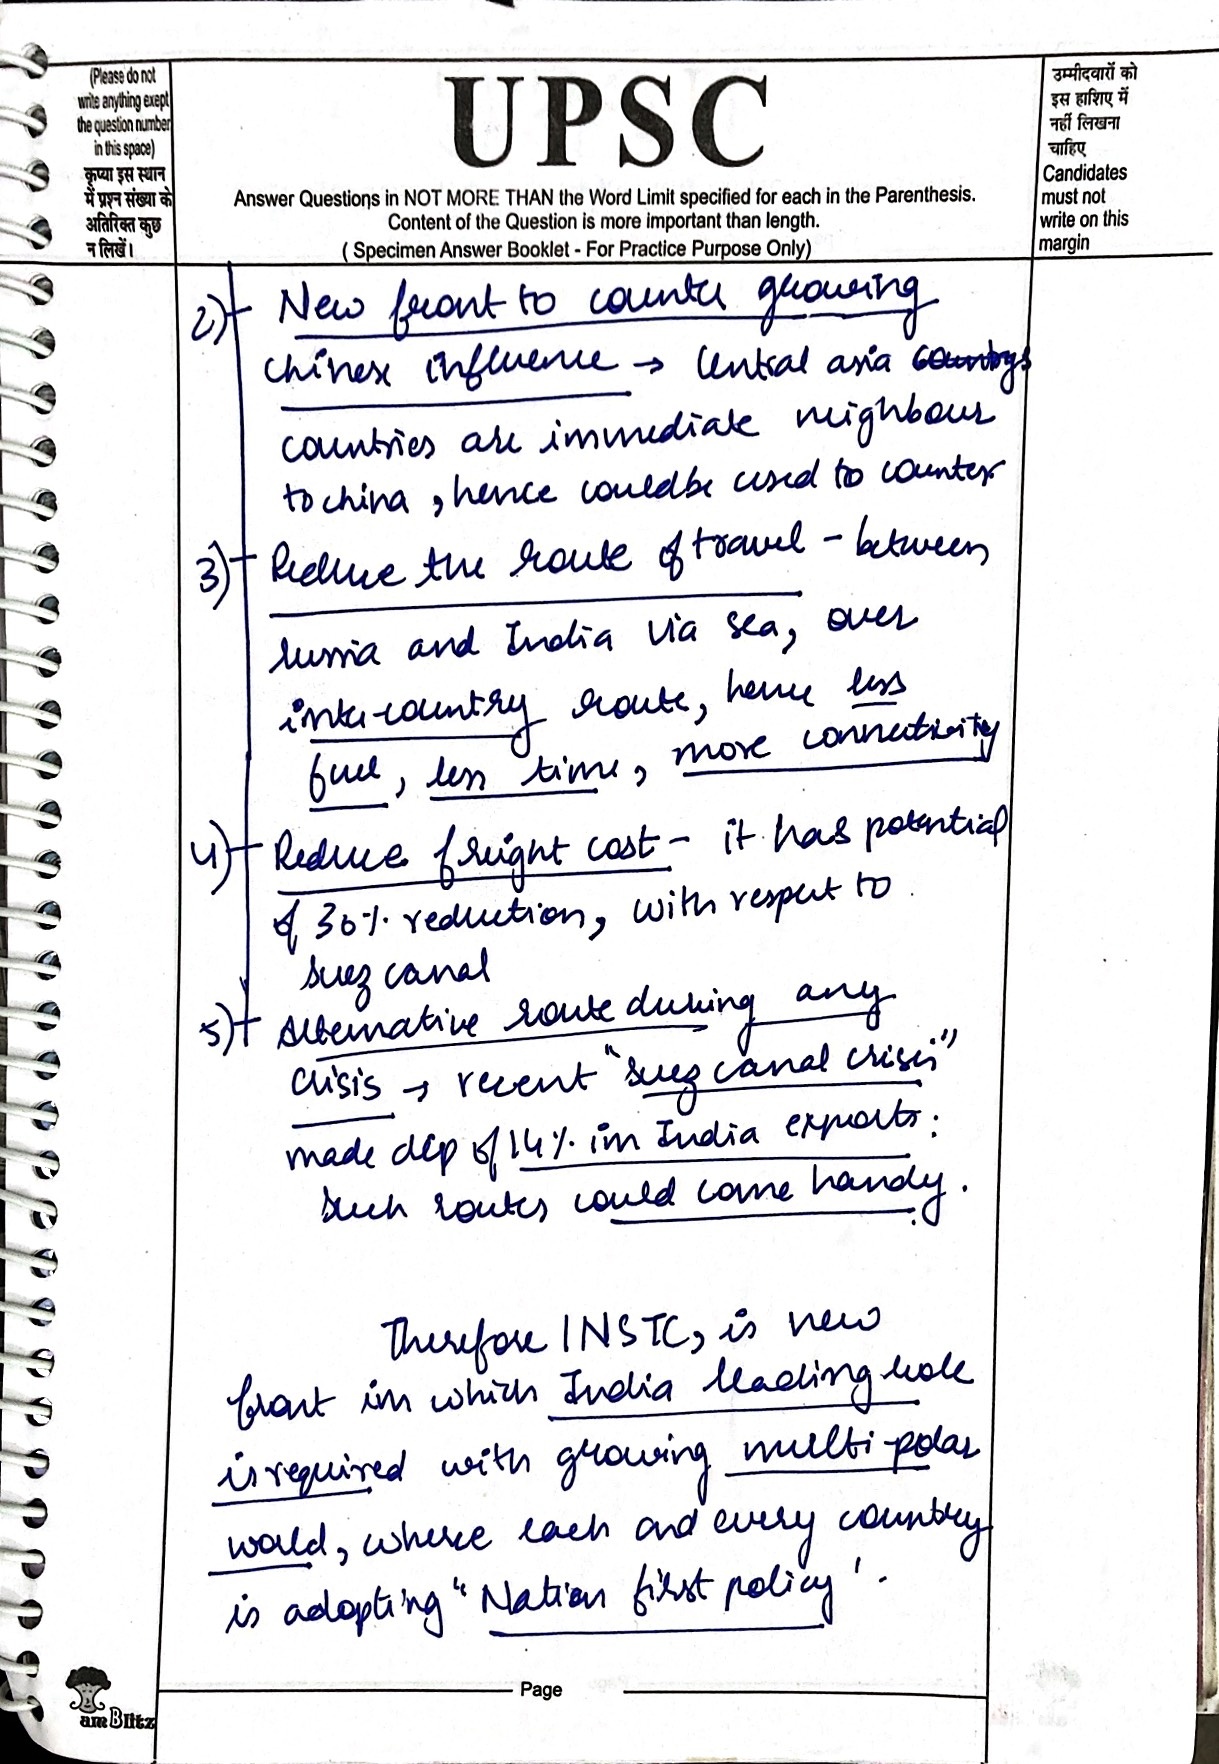 (Please do not
write anything exept
the question number
in this space)
कृप्या इस स्थान
में प्रश्न संख्या के
अतिरिक्त कुछ
न लिखें।
UPSC
Answer Questions in NOT MORE THAN the Word Limit specified for each in the Parenthesis.
Content of the Question is more important than length.
( Specimen Answer Booklet - For Practice Purpose Only)
उम्मीदवारों को
इस हाशिए में
नहीं लिखना
चाहिए
Candidates
must not
write on this
margin
2) New front to counter growing
Chinese influence → Central asia countrys
countries are immediate neighbour
to china, hence could be used to counter
3) Reduce the route of travel - between
Russia and India via sea, over
inter-country route, hence less
fuel, less time, more connectivity
4) Reduce freight cost - it has potential
of 30% reduction, with respect to
Suez canal
5) Alternative route during any
crisis → recent "Suez canal crisis"
made dip of 14% in India exports.
Such routes could come handy.
Therefore INSTC, is new
front in which India leading role
is required with growing multi-polar
world, where each and every country
is adopting "Nation first policy'.
Page
am Blitz